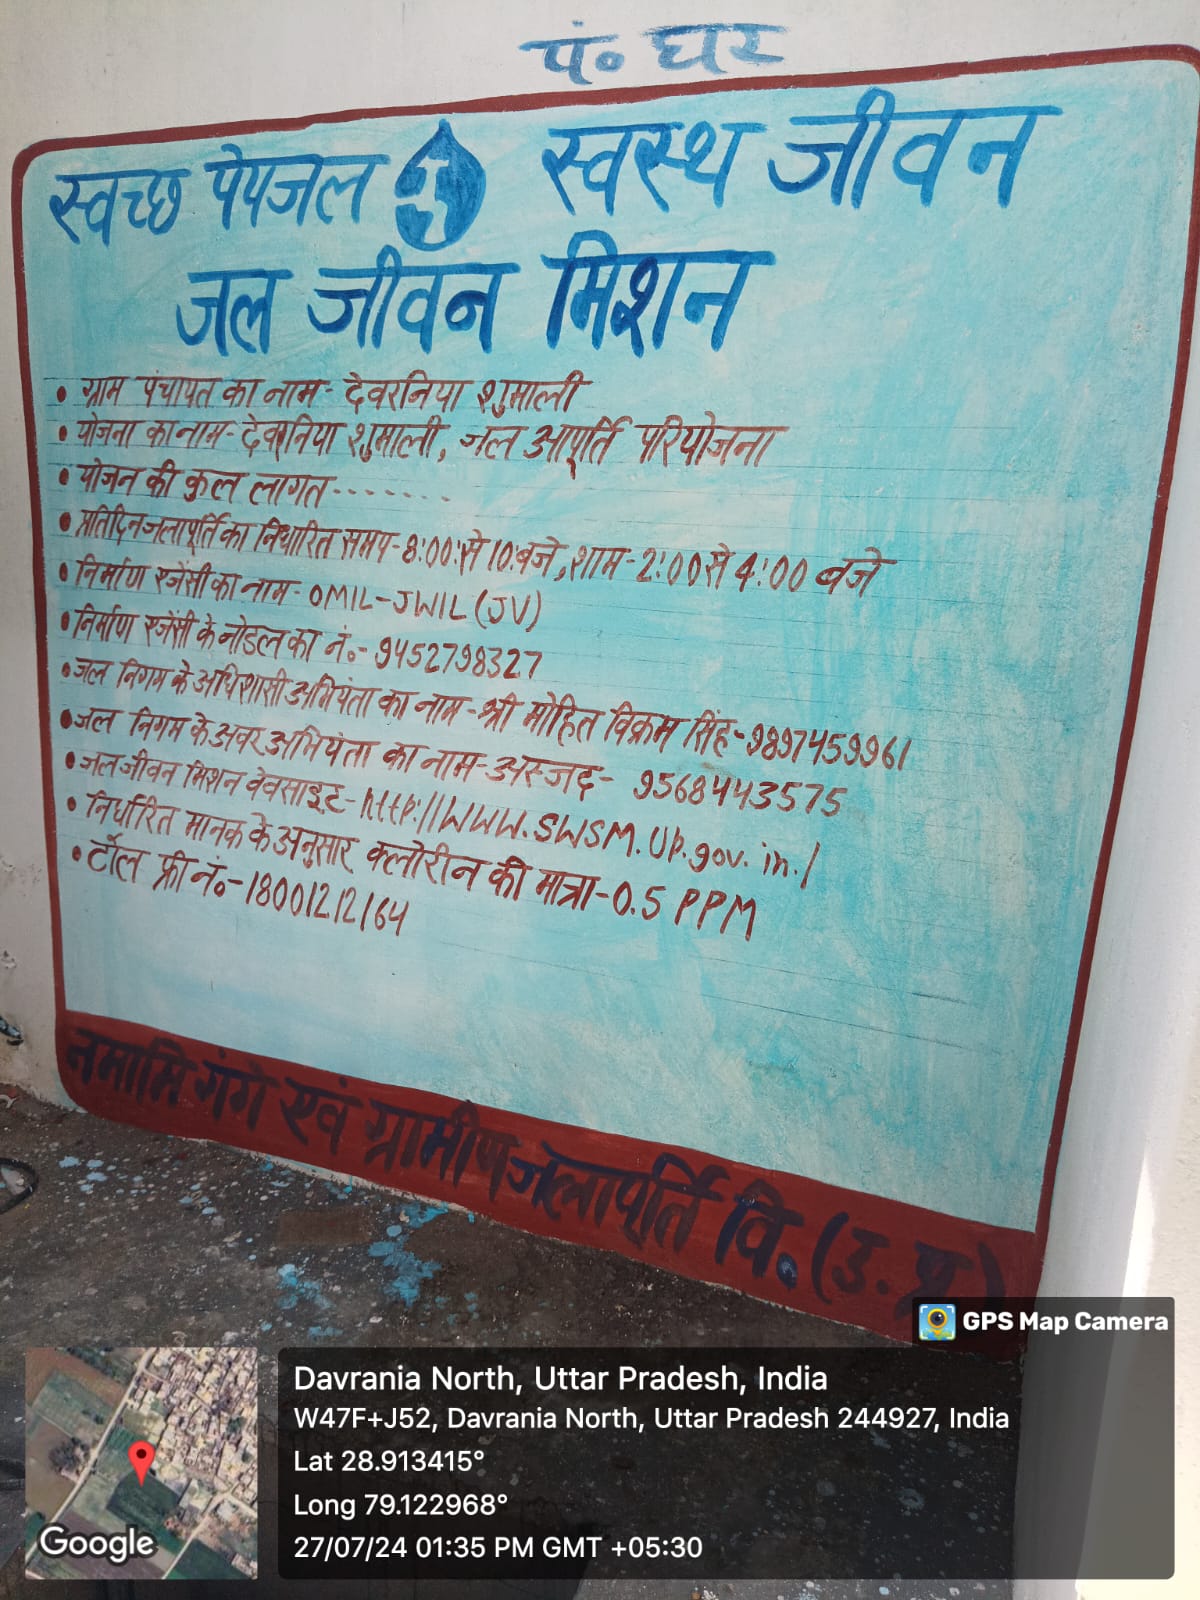 पं॰ घर
स्वच्छ पेयजल स्वस्थ जीवन
जल जीवन मिशन
• ग्राम पंचायत का नाम- देवरनिया शुमाली
• योजना का नाम- देवरनिया शुमाली, जल आपूर्ति परियोजना
• योजन की कुल लागत........
• प्रतिदिन जलापूर्ति का निर्धारित समय-8:00:से 10:बजे, शाम-2:00 से 4:00 बजे
• निर्माण एजेंसी का नाम- OMIL-JWIL (JV)
• निर्माण एजेंसी के नोडल का नं॰- 9452798327
• जल निगम के अधिशासी अभियंता का नाम-श्री मोहित विक्रम सिंह-9897459961
• जल निगम के अवर अभियंता का नाम-अस्जद- 9568443575
• जल जीवन मिशन वेवसाइट-http://www.SWSM.Up.gov.in./
• निर्धारित मानक के अनुसार क्लोरीन की मात्रा-0.5 PPM
• टॉल फ्री नं॰-18001212164
नमामि गंगे एवं ग्रामीण जलापूर्ति वि॰ (उ.प्र)
GPS Map Camera
Davrania North, Uttar Pradesh, India
W47F+J52, Davrania North, Uttar Pradesh 244927, India
Lat 28.913415°
Long 79.122968°
27/07/24 01:35 PM GMT +05:30
Google